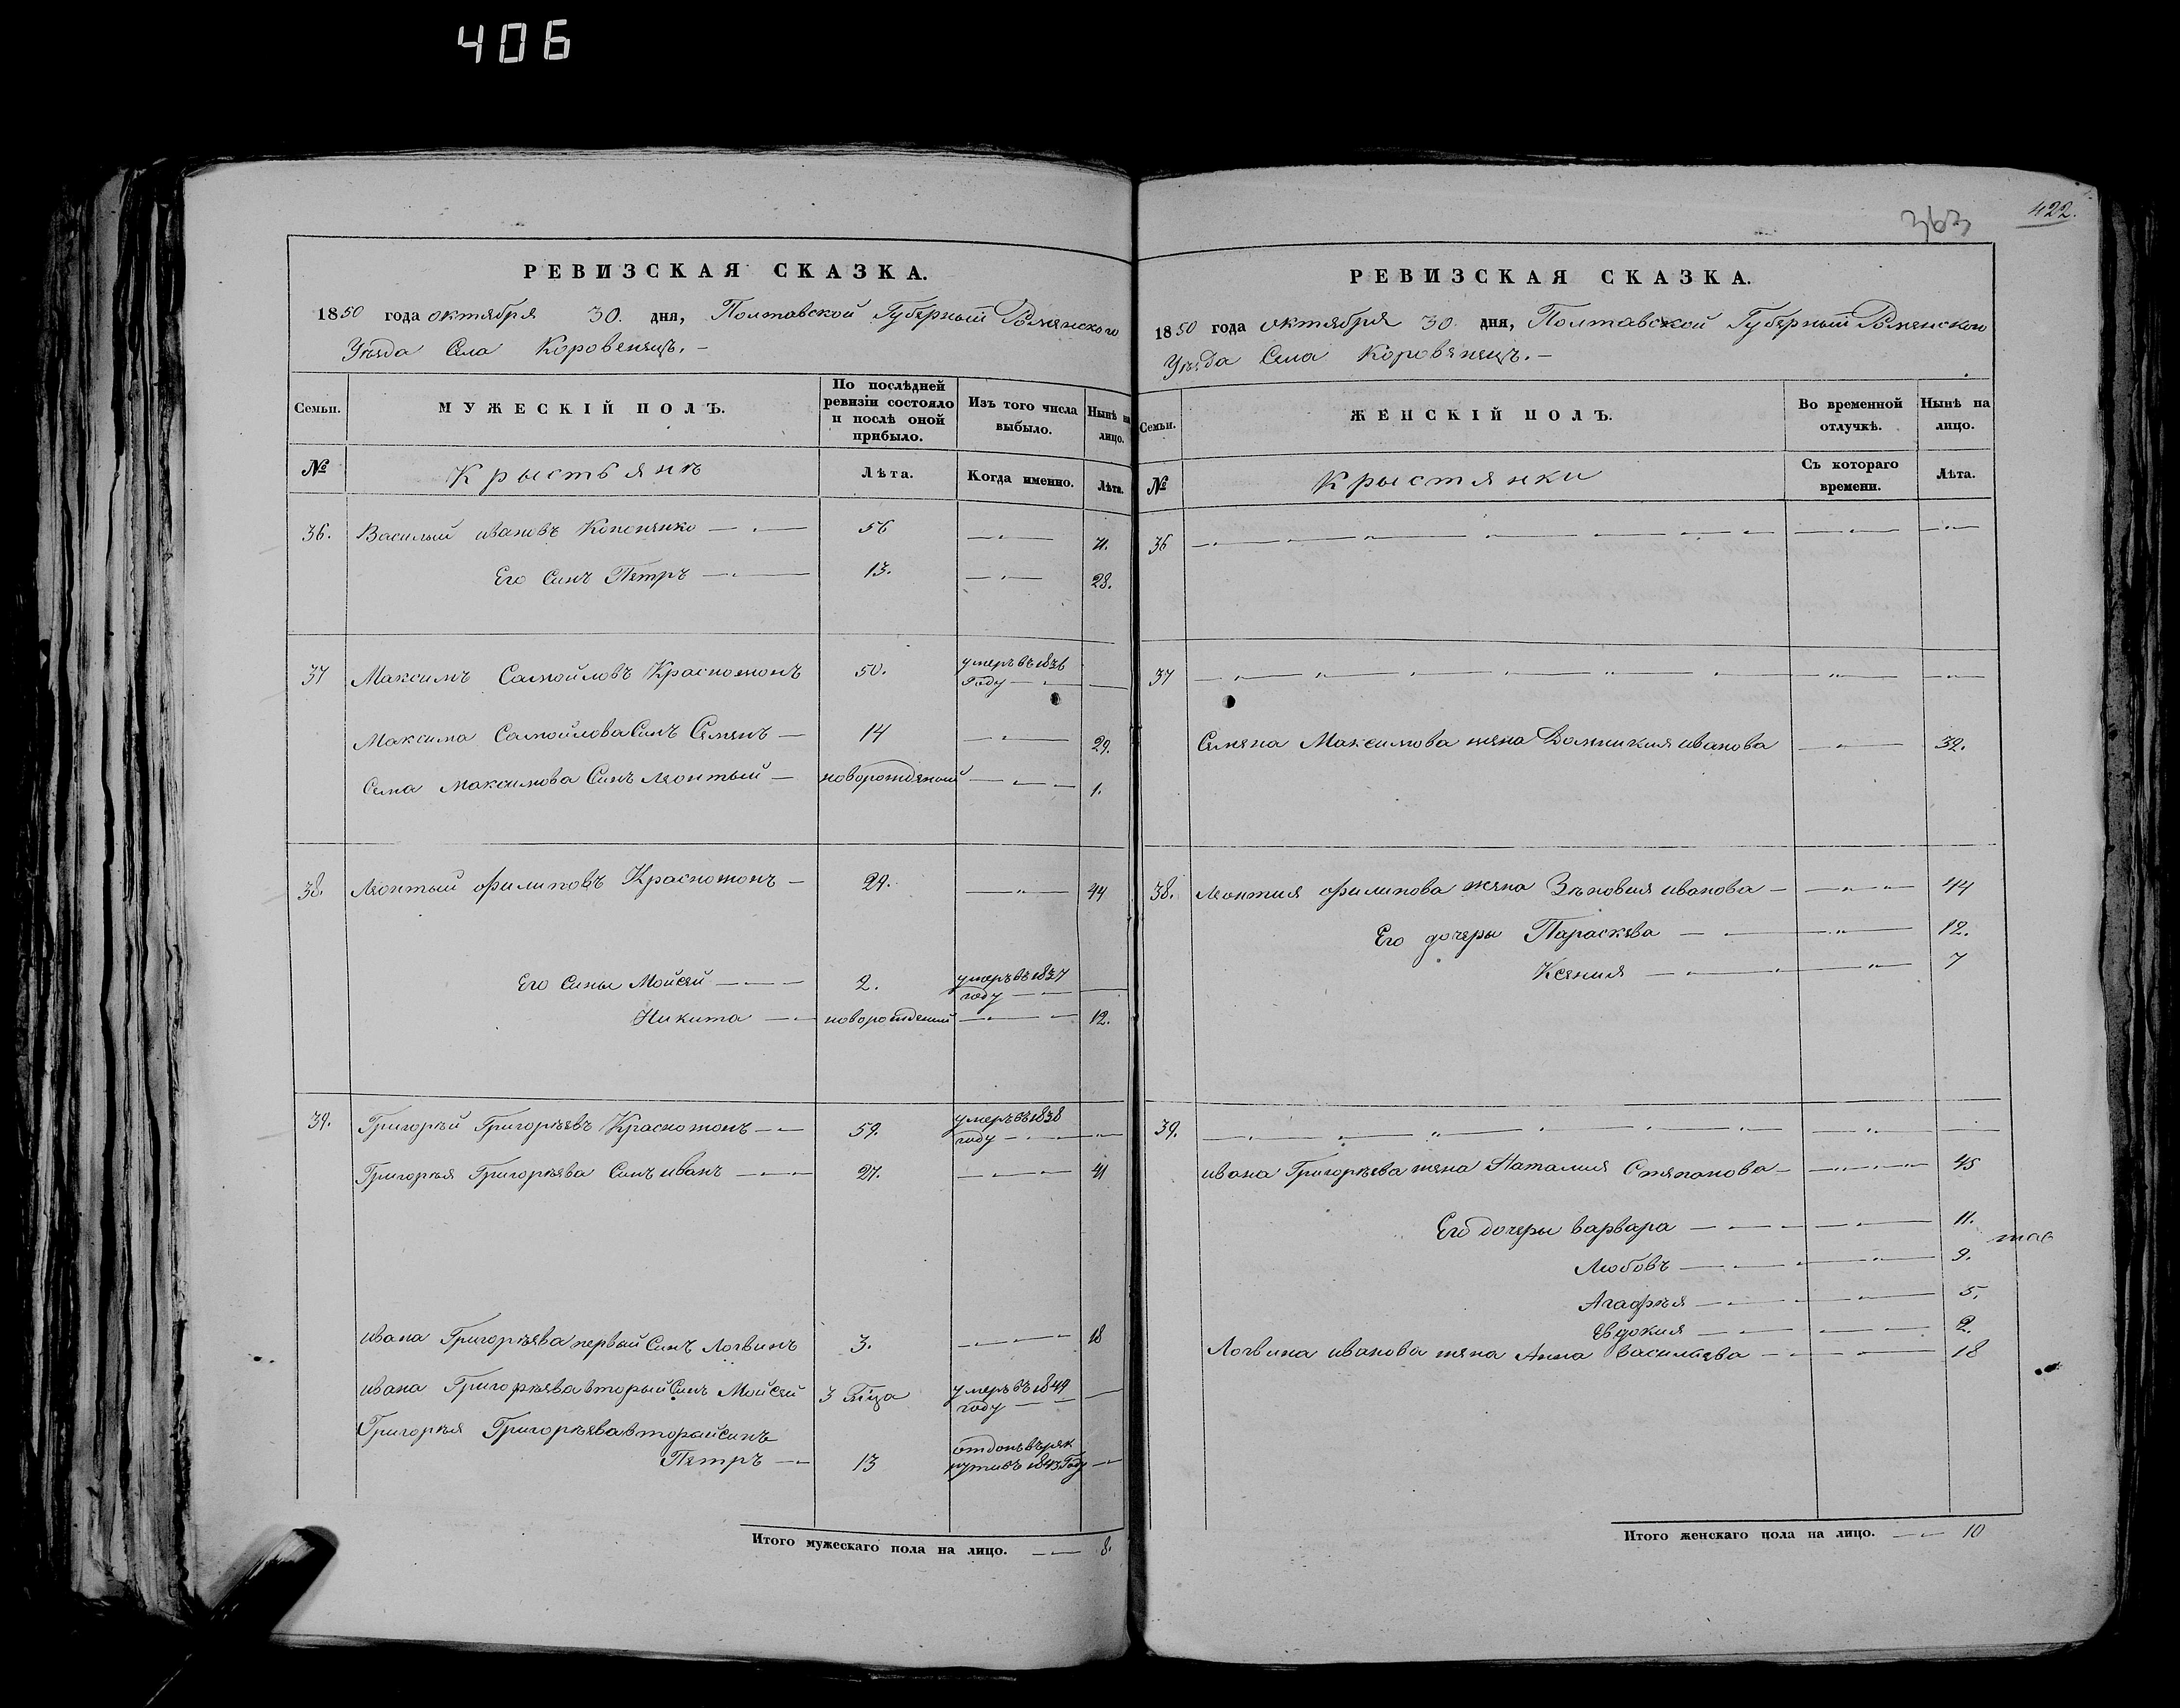 406
РЕВИЗСКАЯ СКАЗКА.
1850 года октября 30. дня, Полтавской Губерныи Роменского
Уезда Села Коровенец. –
Семьи.
МУЖЕСКІЙ ПОЛЪ.
По послѣдней ревизіи состояло и послѣ оной прибыло.
Изъ того числа выбыло.
Нынѣ на лицо.
№
Крыстьянъ
Лѣта.
Когда именно.
Лѣта.
36. Василий ивановъ — 56 —
Его Синъ Петръ — 13. — 28.
37 Максимъ Самойловъ Красножонъ 50. умеръ въ 1836
году —
Максима Самойлова Синъ Семенъ — 14 — 29.
Сема Максимова Синъ Леонтый — новорожденый — 1.
38. Леонтый Филиповъ Красножонъ — 29. — 44
Его Сины Мойсей — 2. умеръ въ 1837
году —
Никита — новорожденый — 12.
39. Григорый Григорьевъ Красножонъ — 59. умеръ въ 1838
году —
Григорья Григорьева Синъ иванъ — 27. — 41
ивана Григорьева первый Синъ Логвинъ 3. — 18
ивана Григорьева вторый Синъ Мойсей 3 умеръ въ 1849
году —
Григорья Григорьева вторый синъ
Петръ — 13 отдонъ въ рек
руты въ 1843 Году —
Итого мужескаго пола на лицо. — 8.
363
422.
РЕВИЗСКАЯ СКАЗКА.
1850 года октября 30 дня, Полтавской Губерный Роменского
Уезда Села Коровенец. –
Семьи.
ЖЕНСКІЙ ПОЛЪ.
Во временной отлучкѣ.
Нынѣ на лицо.
№
Крыстянки
Съ котораго времени.
Лѣта.
36 —
37 —
Семена Максимова жена Домникия иванова — 32.
38. Леонтия Филипова жена Зѣновия иванова — 44
Его дочеры Параскева — 12.
Ксения — 7
39. —
ивана Григорьева жена Наталия Степанова — 45
Его дочеры варвара — 11.
Любовъ — 9.
Агафья — 5.
Евдокия — 2.
Логвина иванова жена Анна Василиева — 18
Итого женскаго пола на лицо. — 10